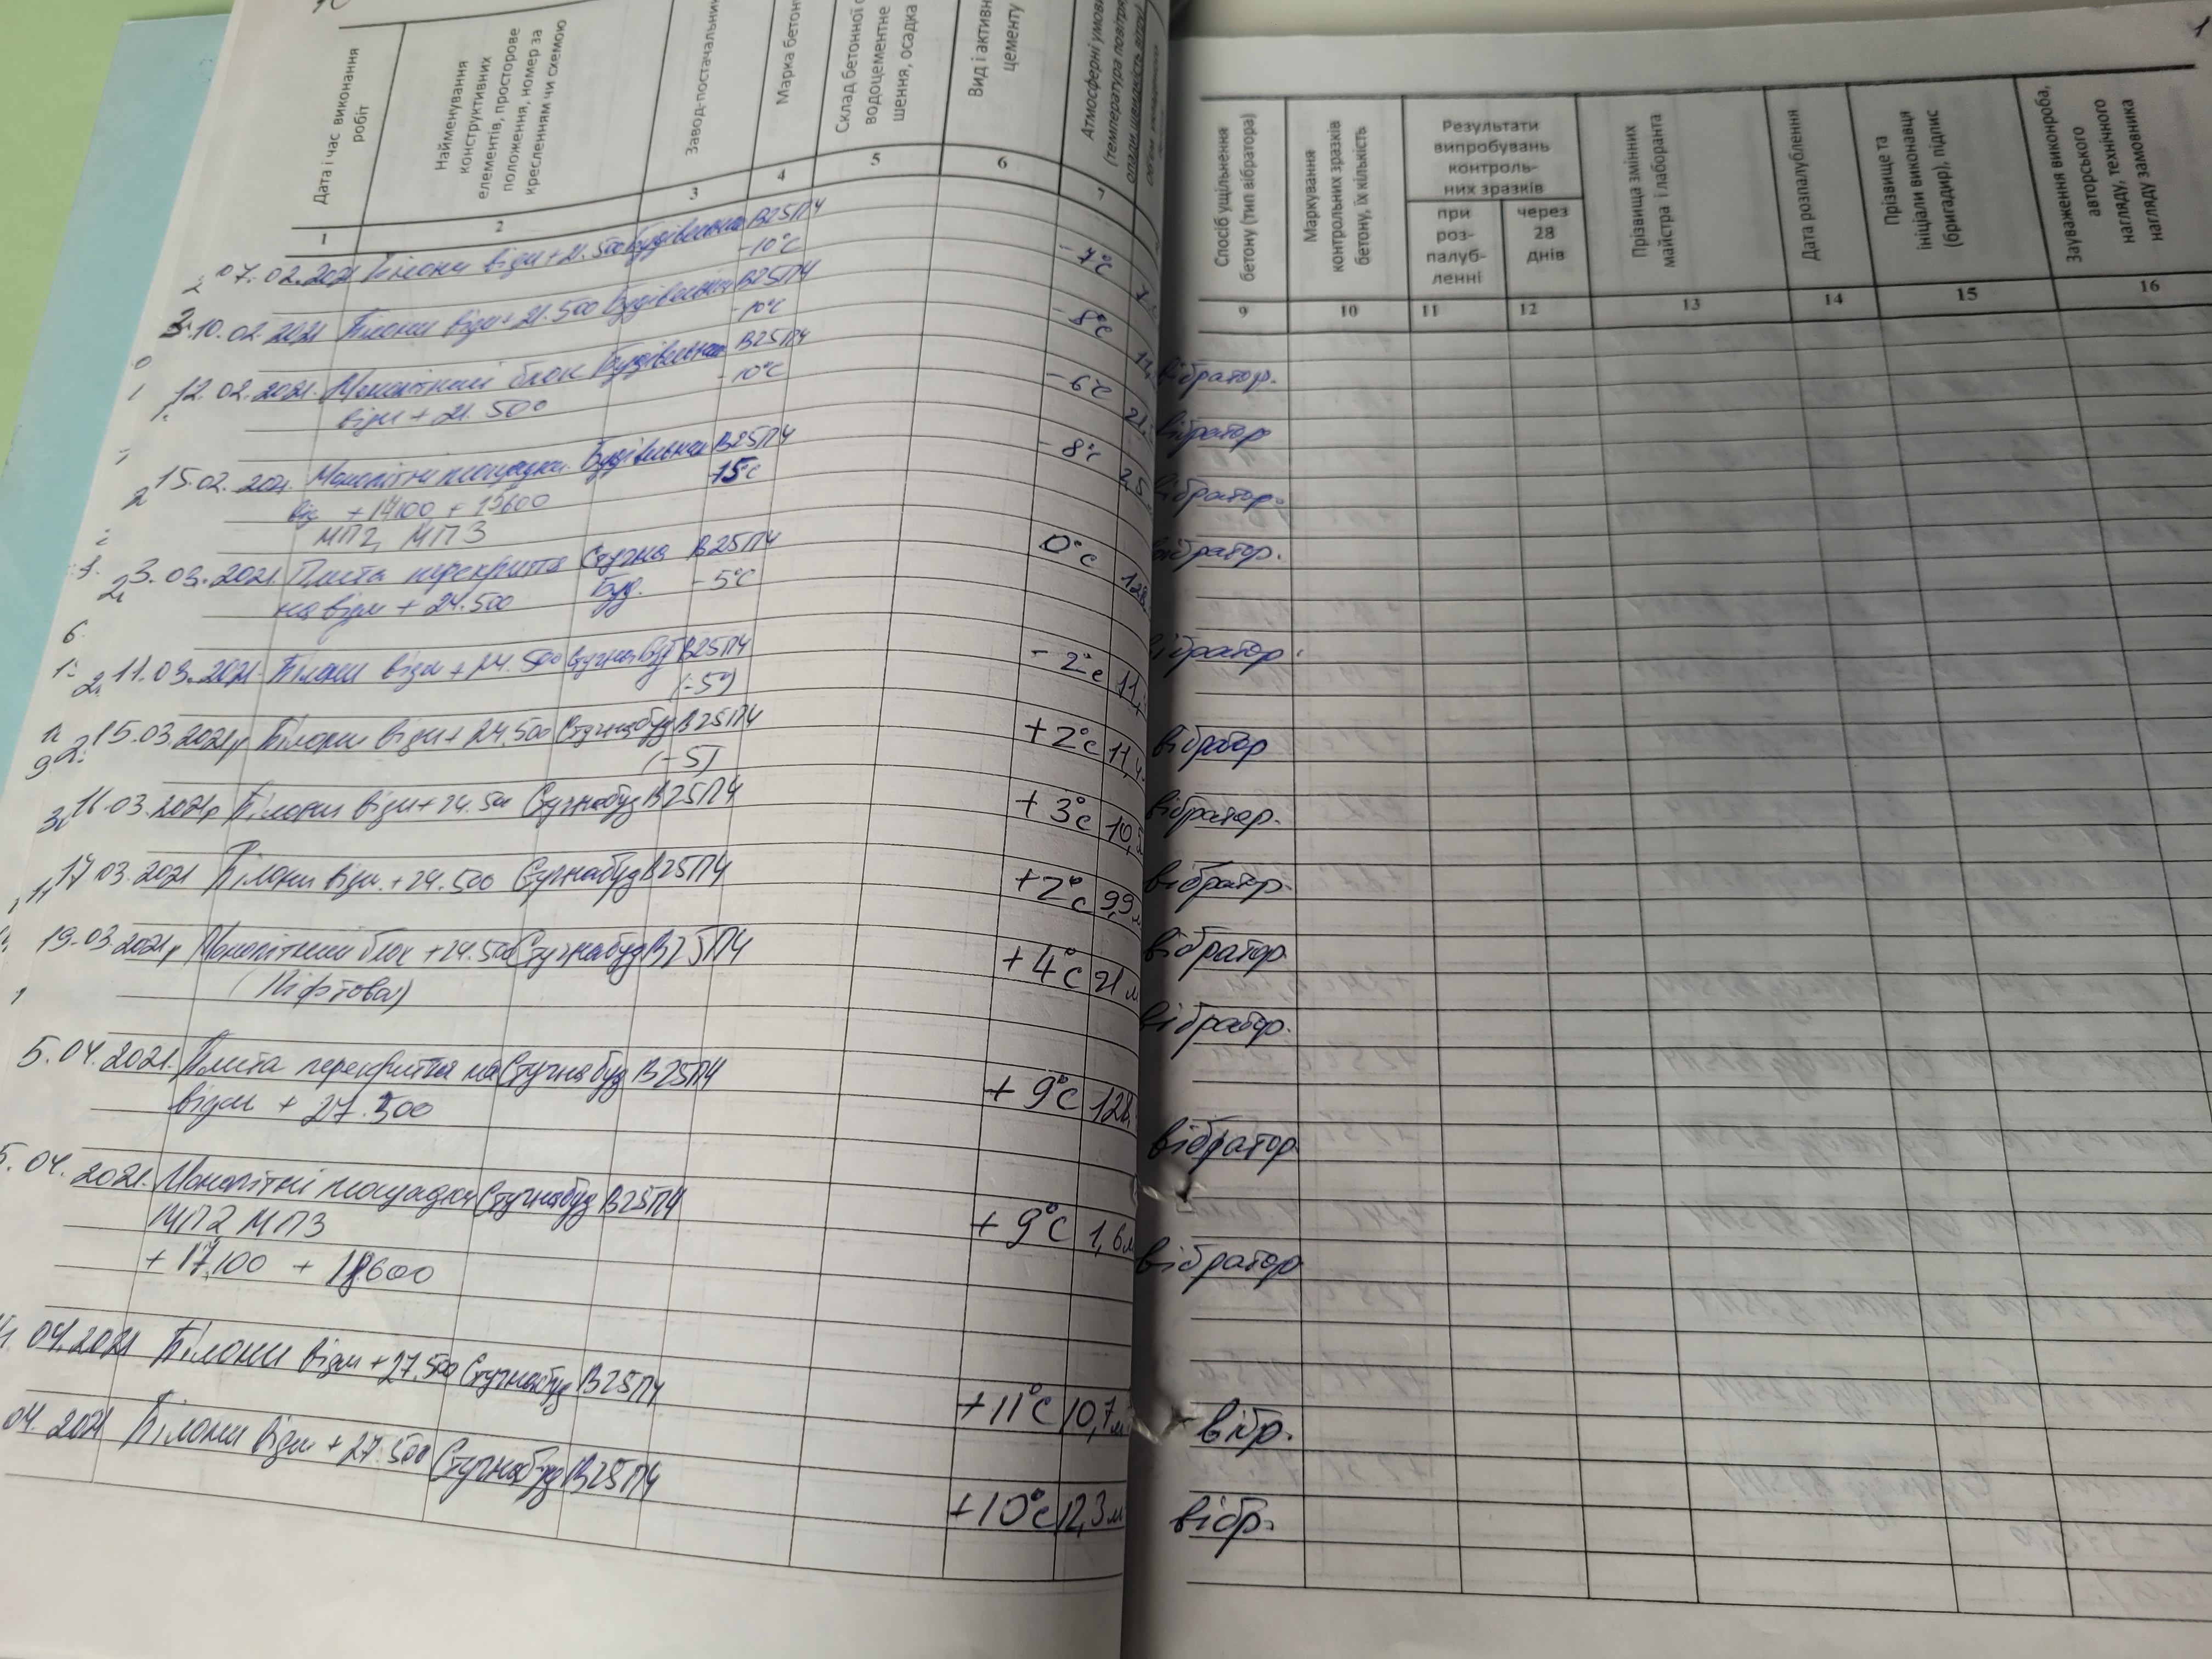 Дата і час виконання
робіт
Найменування
конструктивних
елементів, просторове
положення, номер за
кресленням чи схемою
Завод-постачальни
Марка бетон
Склад бетонної
водоцементне
шення, осадка
Вид і активн
цементу
Атмосферні умови
(температура повітр
опади, швидкість вітру)
1 2 3 4 5 6 7
07.02.2021 Пілони відм +21.500 Будівельна В25П4 -7°С
-10°С
10.02.2021 Пілони відм +21.500 Будівельна В25П4 -8°С
-10°С
12.02.2021. Монолітний блок Будівельна В25П4 -6°С
відм +21.500 -10°С
15.02.2021. Монолітні площадки. Будівельна В25П4 -8°С 2,5
від +14100 +15600 -15°С
МП2, МП3
3.03.2021. Плита перекриття Стугна В25П4 0°С 128
на відм +24.500 Буд. -5°С
11.03.2021. Пілони відм +24.500 Стугна Буд В25П4 -2°С 11,
(-5°)
15.03.2021р Пілони відм +24.500 Стугнабуд В25П4 +2°С 11,4
(-5)
16.03.2021р Пілони відм +24.500 Стугнабуд В25П4 +3°С 10,5
17.03.2021 Пілони відм. +24.500 Стугнабуд В25П4 +2°С 9,9 м
19.03.2021р Монолітний блок +24.500 Стугнабуд В25П4 +4°С 21 м
(Ліфтова)
5.04.2021. Плита перекриття на Стугнабуд В25П4 +9°С 128
відм +27.500
5.04.2021. Монолітні площадки Стугнабуд В25П4 +9°С 1,6 м
МП2 МП3
+17,100 +18600
04.2021 Пілони відм +27.500 Стугнабуд В25П4 +11°С 10,7 м
04.2021 Пілони відм +27.500 Стугнабуд В25П4 +10°С 12,3 м
1
Спосіб ущільнення
бетону (тип вібратора)
Маркування
контрольних зразків
бетону, їх кількість
Результати
випробувань
контроль-
них зразків
при
роз-
палуб-
ленні
через
28
днів
Прізвища змінних
майстра і лаборанта
Дата розпалублення
Прізвище та
ініціали виконавця
(бригадир), підпис
Зауваження виконроба,
авторського
нагляду, технічного
нагляду замовника
9 10 11 12 13 14 15 16
вібратор.
вібратор
вібратор.
вібратор.
вібратор.
вібратор
вібратор.
вібратор.
вібратор.
вібратор.
вібратор
вібратор
вібр.
вібр.